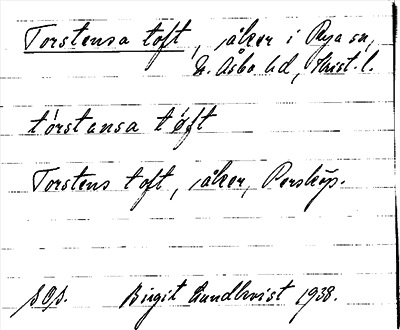 Torstensa toft, åker i Rya sn,
N. Åsbo hd, Krist. l.
tórstansa tóft
Torstens toft, åker, Perstorp.
SOS. Birgit Lundkvist 1938.